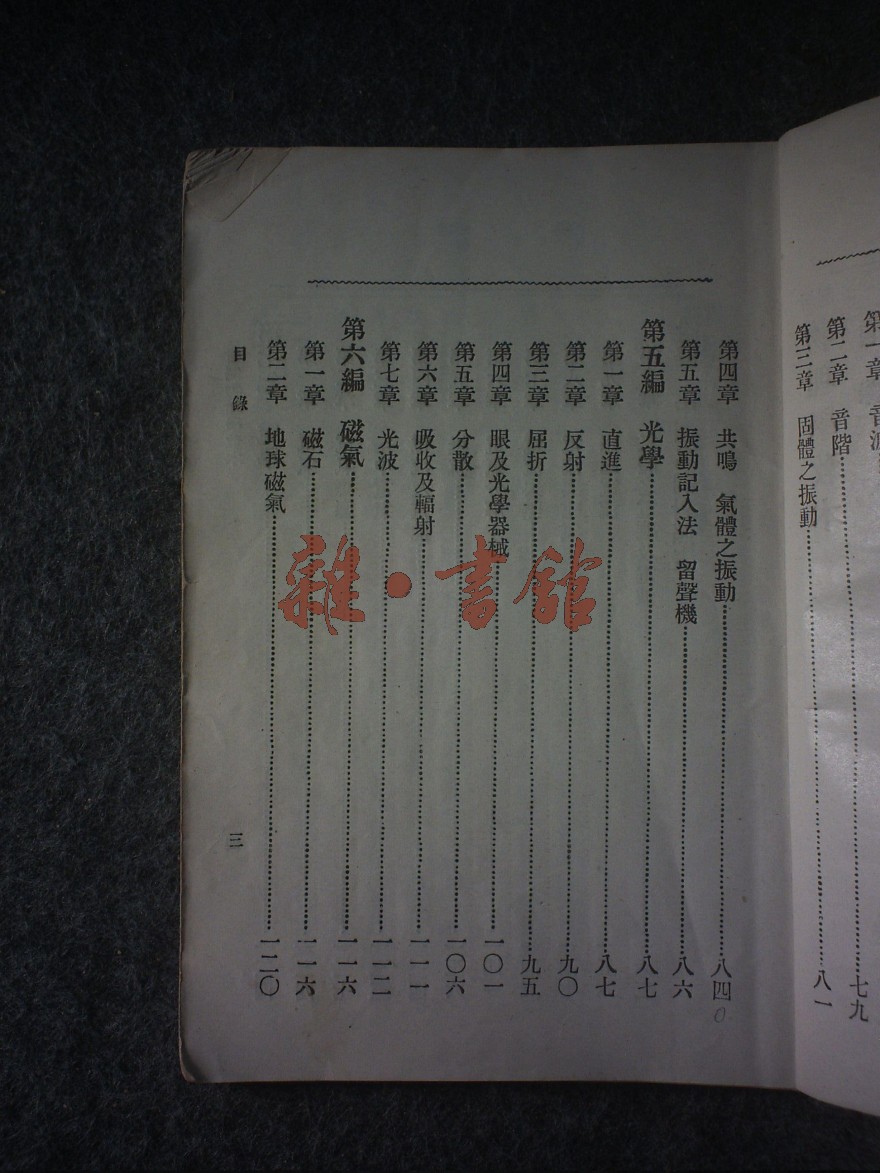 第一章 音波
第二章 音階 七九
第三章 固體之振動 八一
第四章 共鳴 氣體之振動 八四
第五章 振動記入法 留聲機 八六
第五編 光學 八七
第一章 直進 八七
第二章 反射 九〇
第三章 屈折 九五
第四章 眼及光學器械 一〇一
第五章 分散 一〇六
第六章 吸收及輻射 一一一
第七章 光波 一一二
第六編 磁氣 一一六
第一章 磁石 一一六
第二章 地球磁氣 一二〇
目錄 三
雜·書館